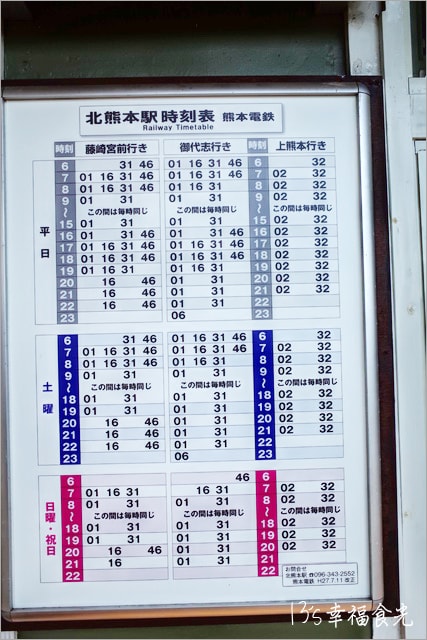 北熊本駅 時刻表 熊本電鉄
Railway Timetable
時刻 藤崎宮前行き 御代志行き 時刻 上熊本行き
平日
6 31 46 01 16 31 46 6 32
7 01 16 31 46 01 16 31 46 7 02 32
8 01 16 31 46 01 16 31 46 8 02 32
9 01 31 01 31 9 02 32
〜 この間は毎時同じ この間は毎時同じ 〜 この間は毎時同じ
15 01 31 01 31 15 02 32
16 01 31 46 01 31 16 02 32
17 01 16 31 46 01 16 31 46 17 02 32
18 01 16 31 46 01 16 31 46 18 02 32
19 01 16 31 01 16 31 19 02 32
20 16 46 01 31 20 02 32
21 16 46 01 31 21 02 32
22 16 46 01 31 22
23 06 23
土曜
6 31 46 01 16 31 46 6 32
7 01 16 31 46 01 16 31 46 7 02 32
8 01 16 31 46 01 16 31 46 8 02 32
9 01 31 01 31 9 02 32
〜 この間は毎時同じ この間は毎時同じ 〜 この間は毎時同じ
18 01 31 01 31 18 02 32
19 01 31 01 31 19 02 32
20 16 46 01 31 20 02 32
21 16 46 01 31 21 02 32
22 16 46 01 31 22
23 06 23
日曜・祝日
6 46 6 32
7 01 16 31 16 31 7 02 32
8 01 31 01 31 8 02 32
〜 この間は毎時同じ この間は毎時同じ 〜 この間は毎時同じ
18 01 31 01 31 18 02 32
19 01 31 01 31 19 02 32
20 16 46 01 31 20 02 32
21 16 01 31 21 02 32
22 22
お問合せ
北熊本駅 ☎096-343-2552
熊本電鉄 H27.7.11 改正
幸福食光